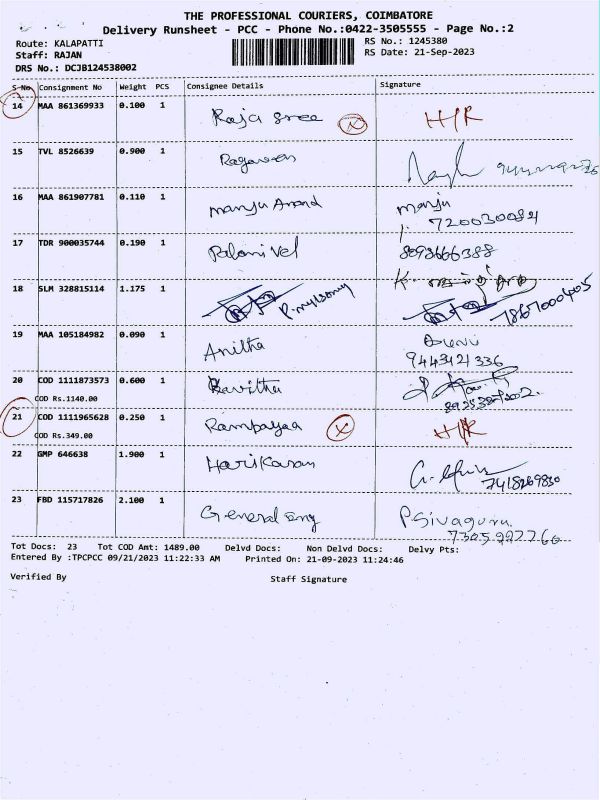 THE PROFESSIONAL COURIERS, COIMBATORE
Delivery Runsheet - PCC - Phone No.:0422-3505555 - Page No.:2
Route: KALAPATTI
RS No.: 1245380
Staff: RAJAN
RS Date: 21-Sep-2023
DRS No.: DCJB124538002
S-No Consignment No Weight PCS Consignee Details Signature
14 MAA 861369933 0.100 1 Raja Sree X H/R
15 TVL 8526639 0.900 1
16 MAA 861907781 0.110 1 Manju Anand Manju
720030084
17 TDR 900035744 0.190 1 Palanivel 8098666388
18 SLM 328815114 1.175 1
19 MAA 105184982 0.090 1 Anitha
9443121336
20 COD 1111873573 0.600 1 Kavitha
COD Rs.1140.00
21 COD 1111965628 0.250 1 Rampayaa X H/R
COD Rs.349.00
22 GMP 646638 1.900 1 Harikaran
7418269830
23 FBD 115717826 2.100 1 P Sivaguru
Tot Docs: 23 Tot COD Amt: 1489.00 Delvd Docs: Non Delvd Docs: Delvy Pts:
Entered By :TPCPCC 09/21/2023 11:22:33 AM Printed On: 21-09-2023 11:24:46
Verified By Staff Signature